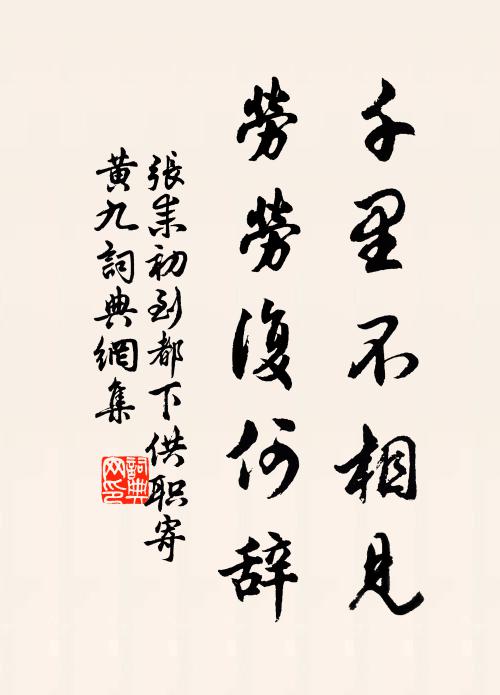 千里不相見
勞勞復何辞
張耒初到都下供职寄
黄九詞典網集
詞典
网印